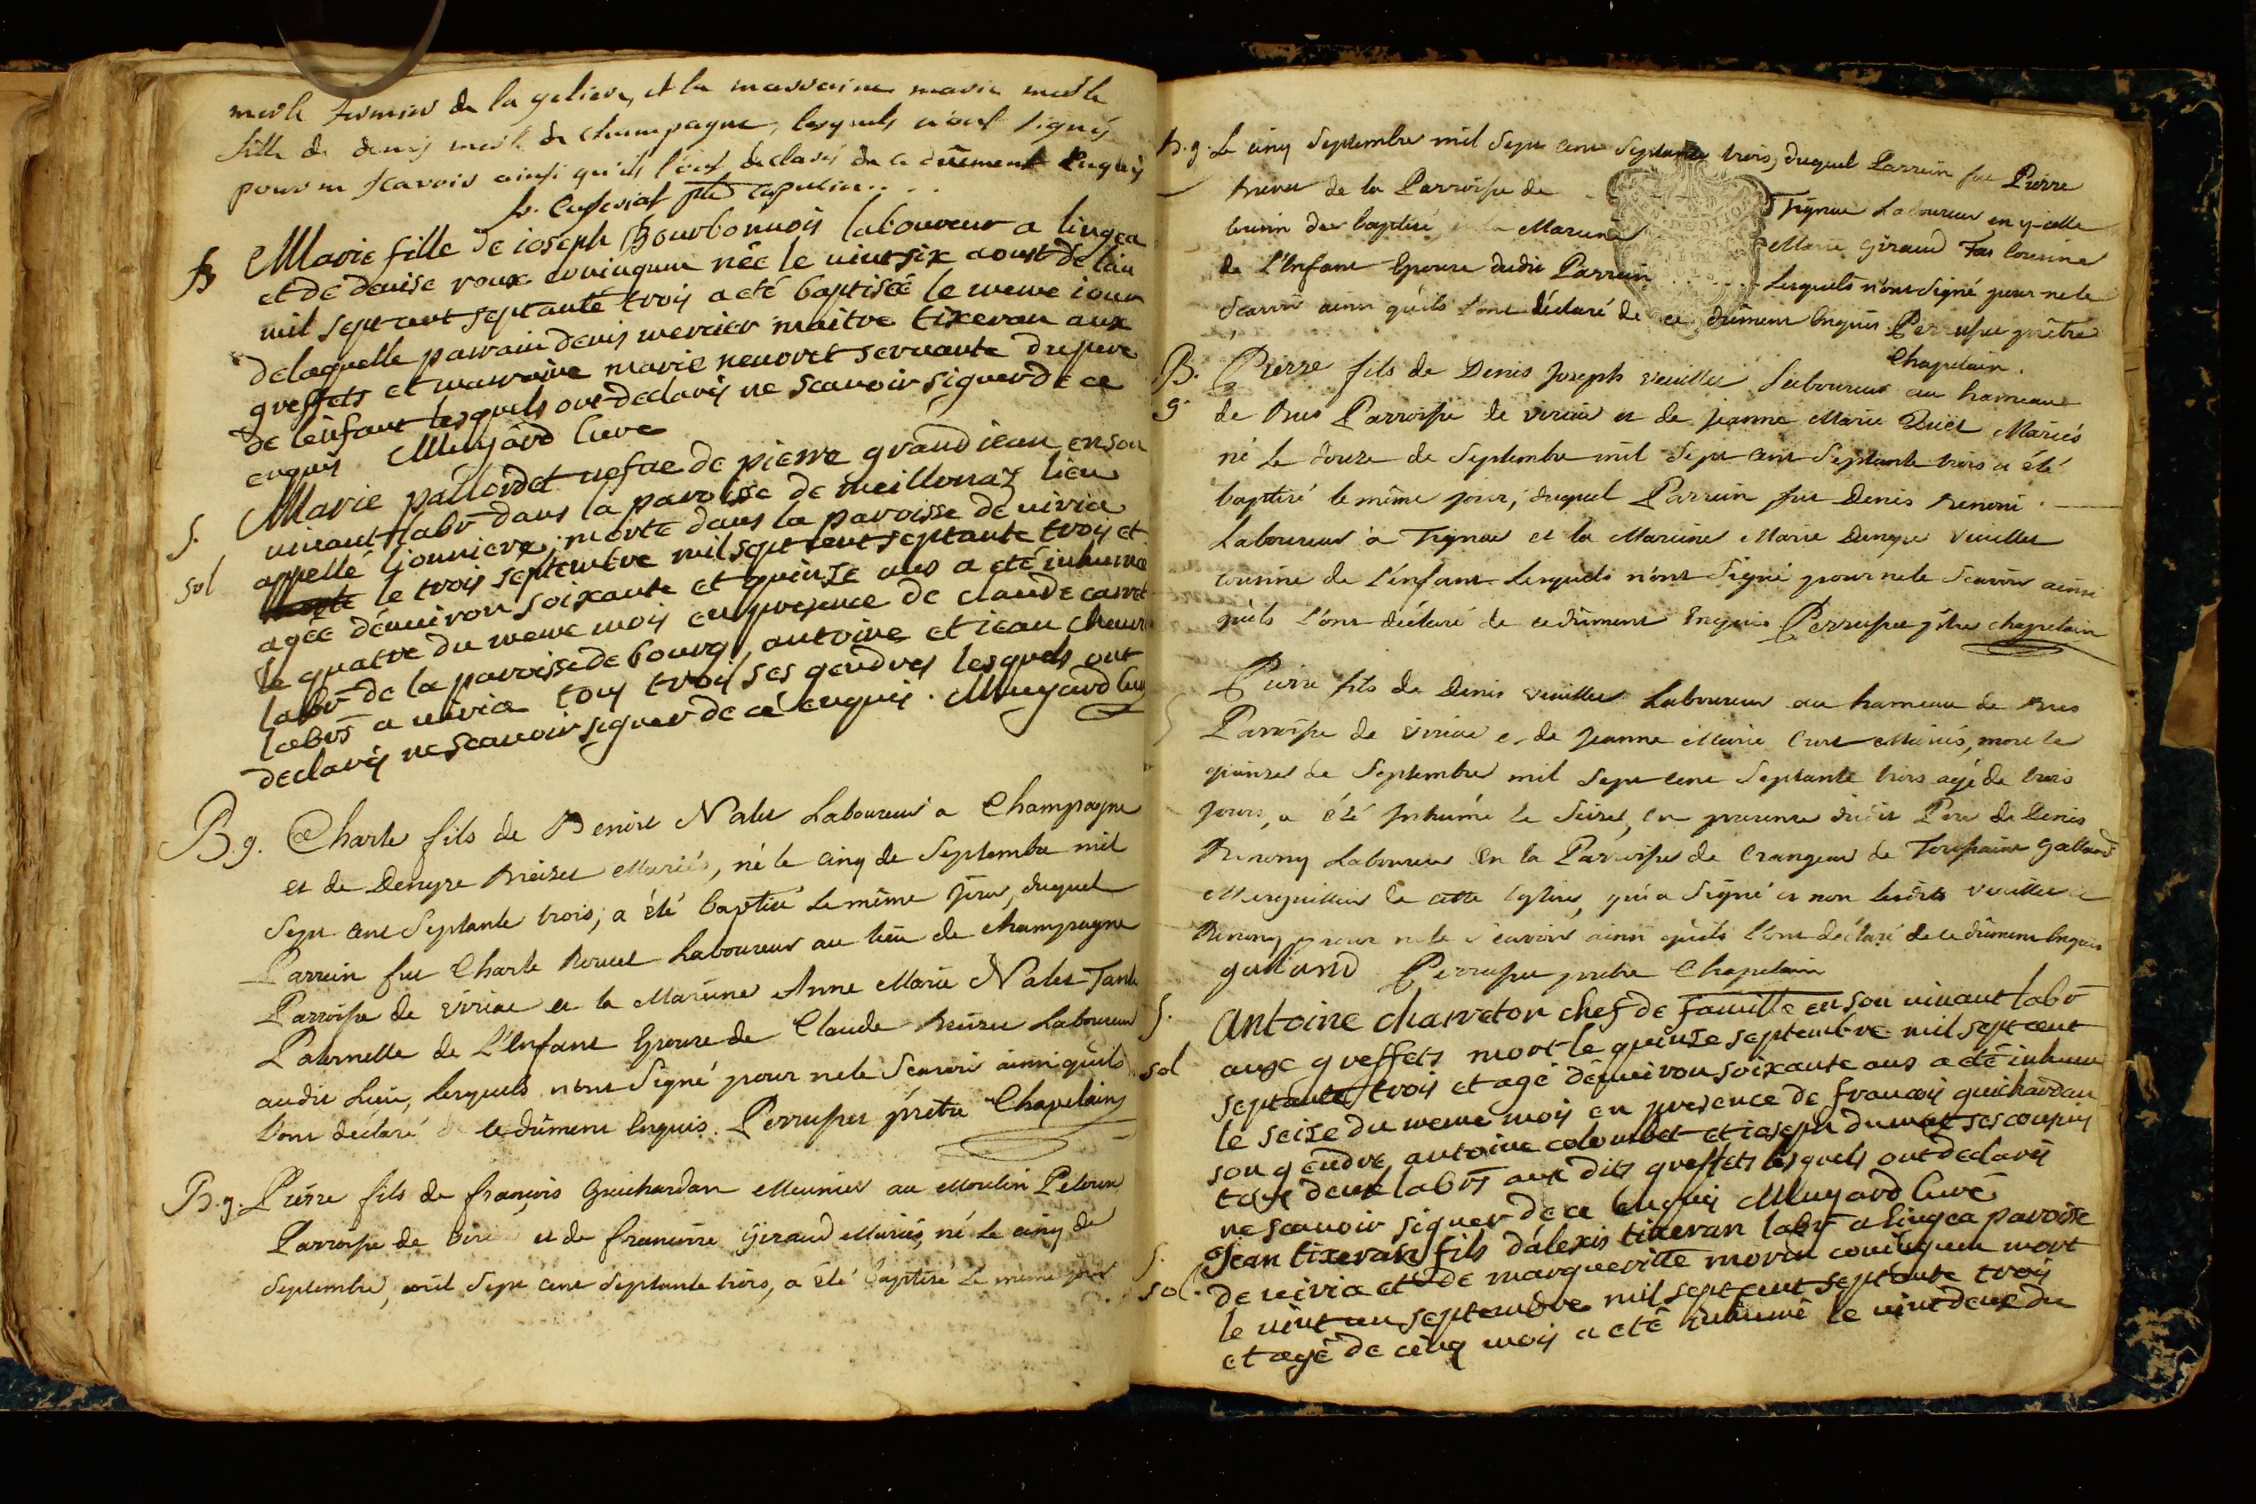 merle fermier de la geliere, et la marraine marie merle
fille de denis merle de champagne, lesquels n'ont signés
pour ne scavoir ainsi qu'ils l'ont declarés de ce dûment enquis
ptre capucin..
B Marie fille de ioseph Bourbonnois laboureur a lingea
et de denise roux coniugum née le uint six aoust de l'an
mil sept cent septante trois a eté baptisée le meme iour
de laquelle parrain denis mercier maitre tixeran aux
greffets et marraine marie neuoret seruante du pere
de l'enfant lesquels ont declarés ne scauoir signer de ce
enquis Muyard Curé
S. Marie paliordet uefue de pierre grand iean en son
uiuant labr dans la paroisse de meillonaz lieu
sol appellé lionniere, morte dans la paroisse de uiria
le trois septembre mil sept cent septante trois et
agée d'enuiron soixante et quinze ans a eté inhumée
le quatre du meme mois en presence de claude carret
labr de la paroisse de bourg, antoine et iean
labrs a uiria tous trois ses gendres lesquels ont
declarés ne scauoir signer de cé enquis. Muyard Curé
B.g. Charle fils de Benoit Nalet Laboureur a Champagne
et de Denyse Mariés, né le cinq de Septembre mil
Sept cent Septante trois, a été baptisé le même jour, duquel
Parrein fut Charle Laboureur au lieu de champagne
Parroisse de viriac et la Mareine Anne Marie Nalet Tante
Paternelle de L'Enfant Epouse de Claude Laboureur
audit Lieu, lesquels n'ont Signé pour ne le Scavoir ainsi qu'ils
l'ont déclaré de ce dûment Enquis. Perruquet prêtre Chapelain
B.g. Pierre fils de françois Guichardan Meunier au Moulin Peloux
Parroisse de viriac et de françoise Giraud Mariés, né le cinq de
Septembre, mil Sept cent Septante trois, a été baptisé le même jour
B.g. Le cinq Septembre mil Sept cent Septante trois, duquel Parrein fut Pierre
de la Parroisse de Tignac Laboureur en y-celle
cousin dex baptisé, et la Mareine Marie Giraud cousine
de L'Enfant Epouse dudit Parrein Lesquels n'ont Signé pour ne le
Scavoir ainsi qu'ils l'ont déclaré de ce dûment Enquis Perruquet prêtre
Chapelain.
B. Pierre fils de Denis Joseph veuillet Laboureur au hameau
g. de Rus Parroisse de viriac et de Jeanne Marie Mariés
né Le douze de Septembre mil Sept cent Septante trois a été
baptisé le même jour, duquel Parrein fut Denis Renoni
Laboureur à Tignac et la Mareine Marie Denyse veuillet
cousine de L'enfant Lesquels n'ont Signé pour ne le Scavoir ainsi
qu'ils l'ont déclaré de ce dûment Enquis Perruquet ptre chapelain
Pierre fils de Denis veuillet Laboureur au hameau de Rus
Parroisse de viriac et de Jeanne Marie Mariés, mort le
quinze de Septembre mil Sept cent Septante trois agé de trois
jours, a été Inhumé le Seize, en presence dudit Pere de Denis
Renony Laboureur En la Parroisse de Crangeac de Toussaint Galland
Marguillier de cette Eglise, qui a Signé et non lesdits veuillet et
Renony pour ne le Scavoir ainsi qu'ils l'ont déclaré de ce dûment Enquis
galland Perruquet prêtre Chapelain
S. antoine charveton chef de famille en son uiuant labr
sol aux greffets mort le quinze septembre mil sept cent
septante trois et agé d'enuiron soixante ans a eté inhumé
le seize du meme mois en presence de francois guichardan
son gendre, antoine colombet et ioseph dumas ses cousins
tous deux labrs aux dits greffets lesquels ont declarés
ne scauoir signer de ce enquis Muyard Curé
S. Jean tixeran fils d'alexis tixeran labr a lingea paroisse
sol. de uiria et de marguerite morin coniugum mort
le uint un septembre mil sept cent septante trois
et agé de cinq mois a eté inhumé le uint deux du